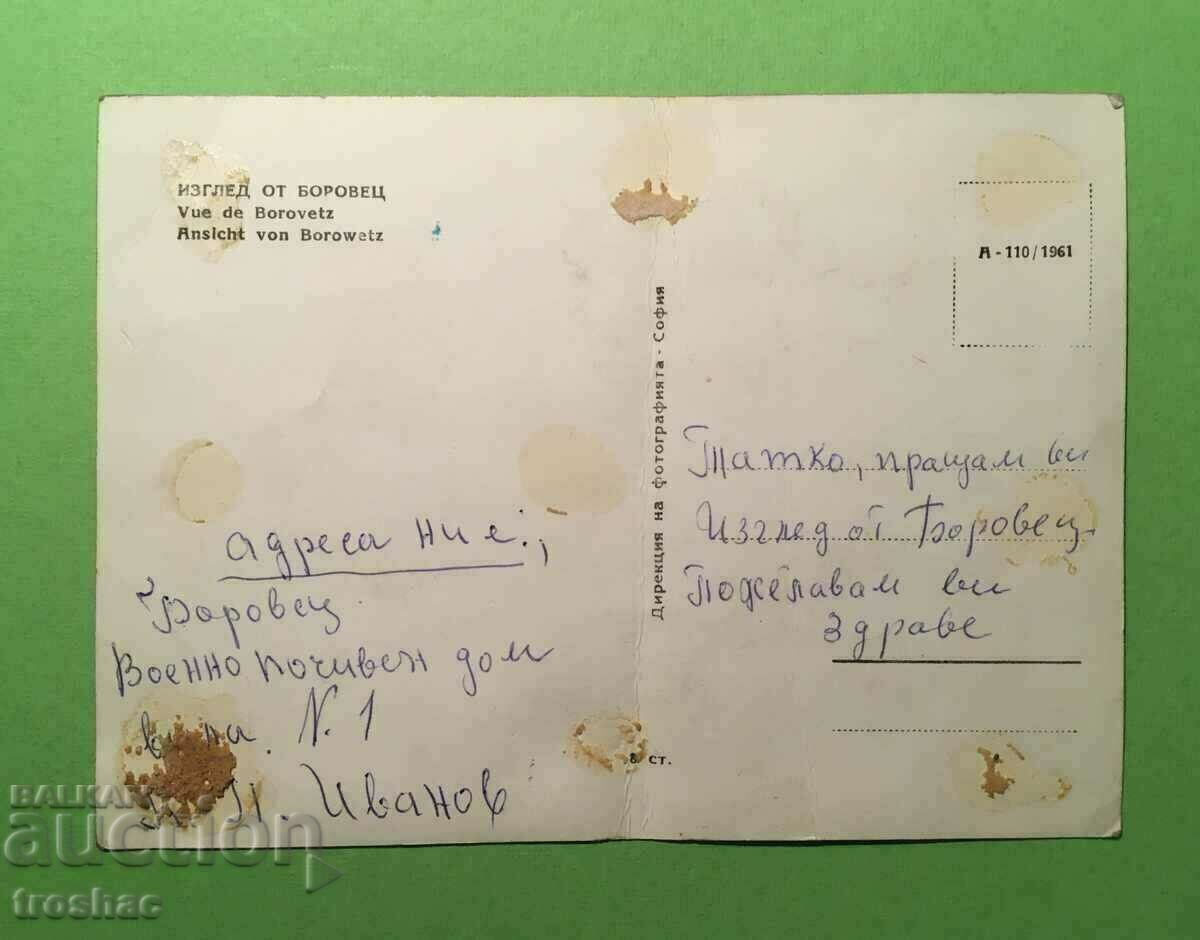 ИЗГЛЕД ОТ БОРОВЕЦ
Vue de Borovetz
Ansicht von Borowetz
адреса ни е:,
Боровец
Военно почивен дом
N. 1
П. Иванов
Дирекция на фотографията - София
8 ст.
А - 110 / 1961
Татко, пращам ви
Изглед от Боровец.
Пожелавам ви
здраве
BALKAN
auction
troshac